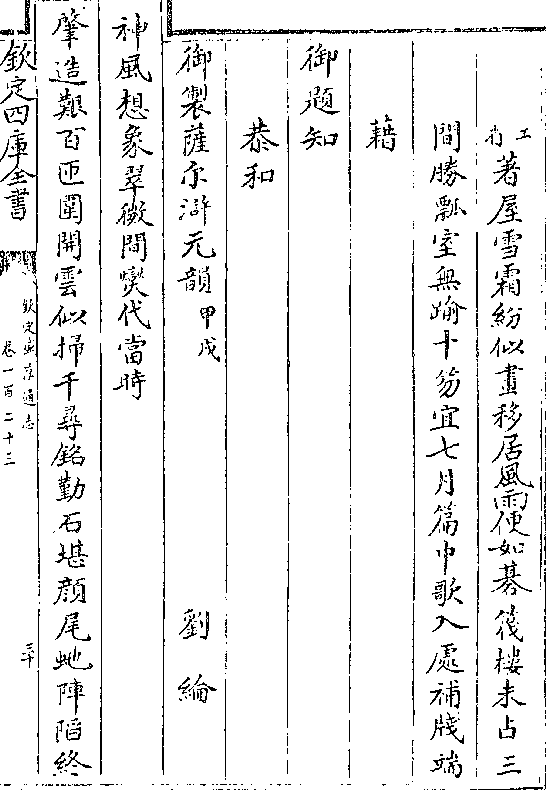 工肖著屋雪霜紛似畫移居風雨便如棊筏樓未占三
間勝瓢室無踰十笏宜七月篇中歌入處補牋端
藉
御題知
恭和
御製薩尔滸元韻 甲戌 劉綸
神風想象翠微間燮代當時
肇造艱百匝圍開雲似掃千尋銘勤石堪顔尾虵陣䧟終
欽定四庫全書
欽定盛京通志
卷一百二十三
三十